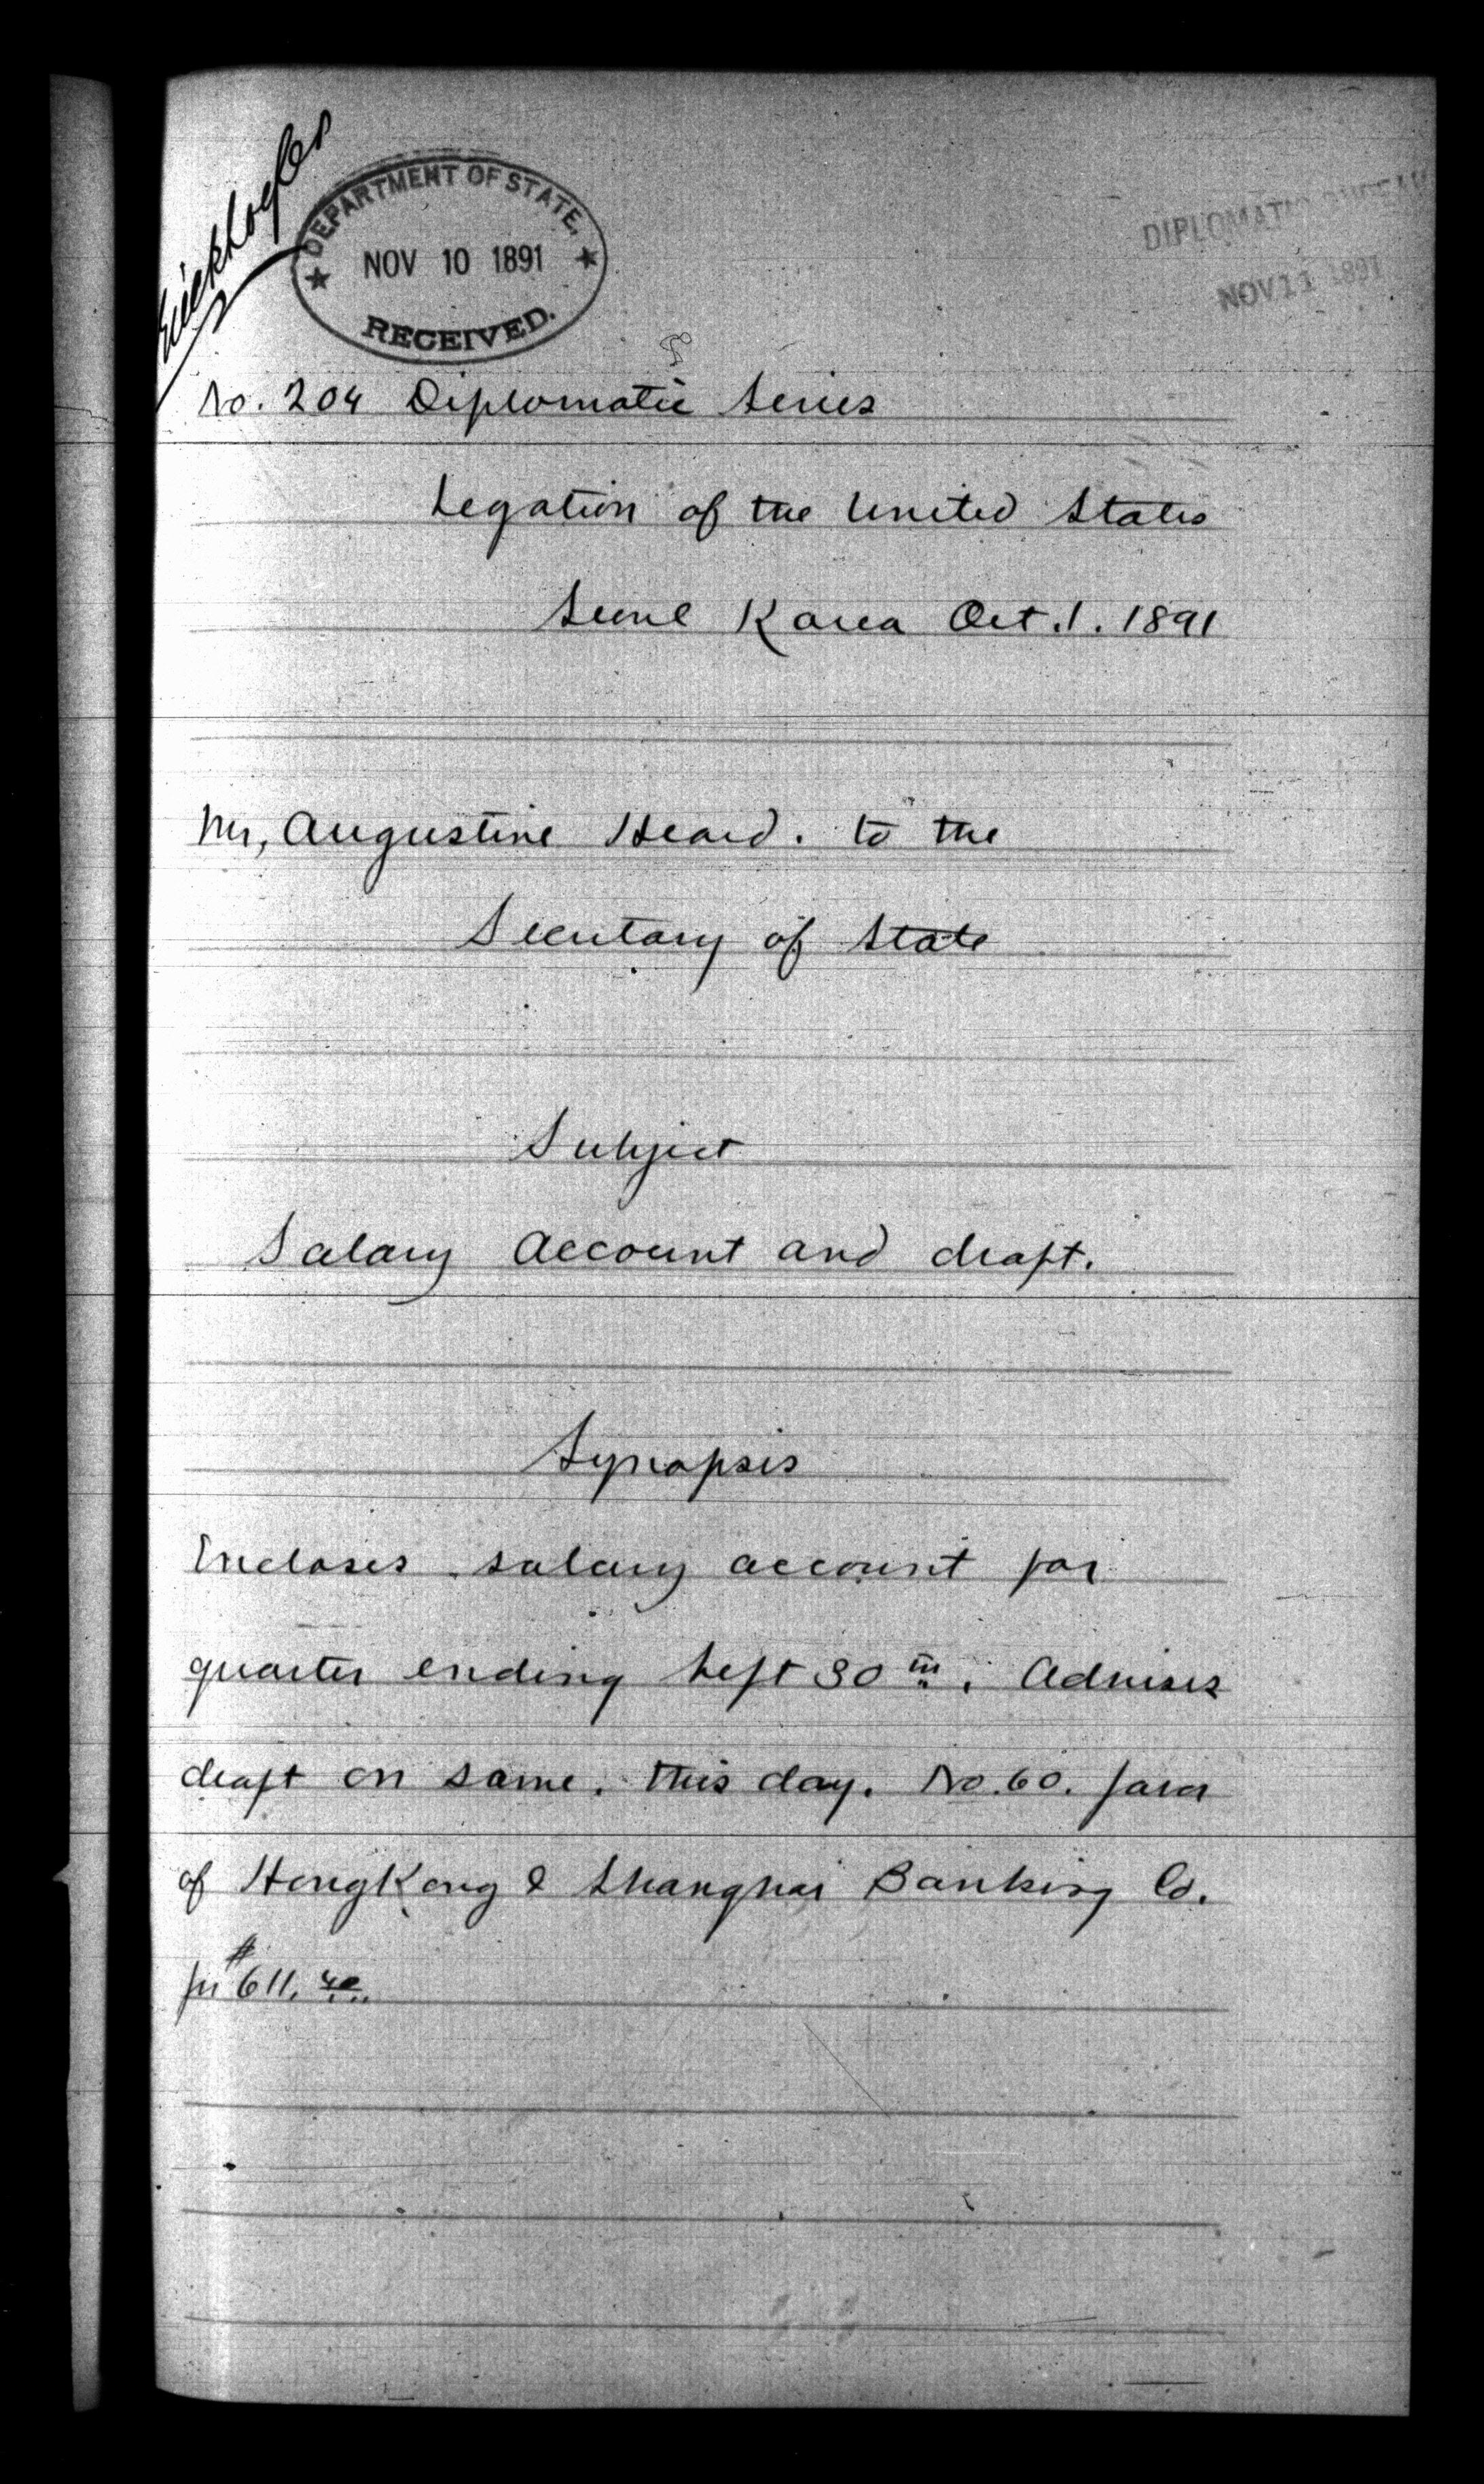 DEPARTMENT OF STATE,
NOV 10 1891
RECEIVED.
DIPLOMATIC BUREAU
NOV 11 1891
No. 204 Diplomatic Series
Legation of the United States
Seoul Korea Oct. 1. 1891
Mr, Augustine Heard. to the
Secretary of State
Subject
Salary Account and draft.
Synopsis
Encloses salary account for
quarter ending Sept 30th. Advises
draft on same. this day. No. 60. favor
of HongKong & Shanghai Banking Co.
for $611.40